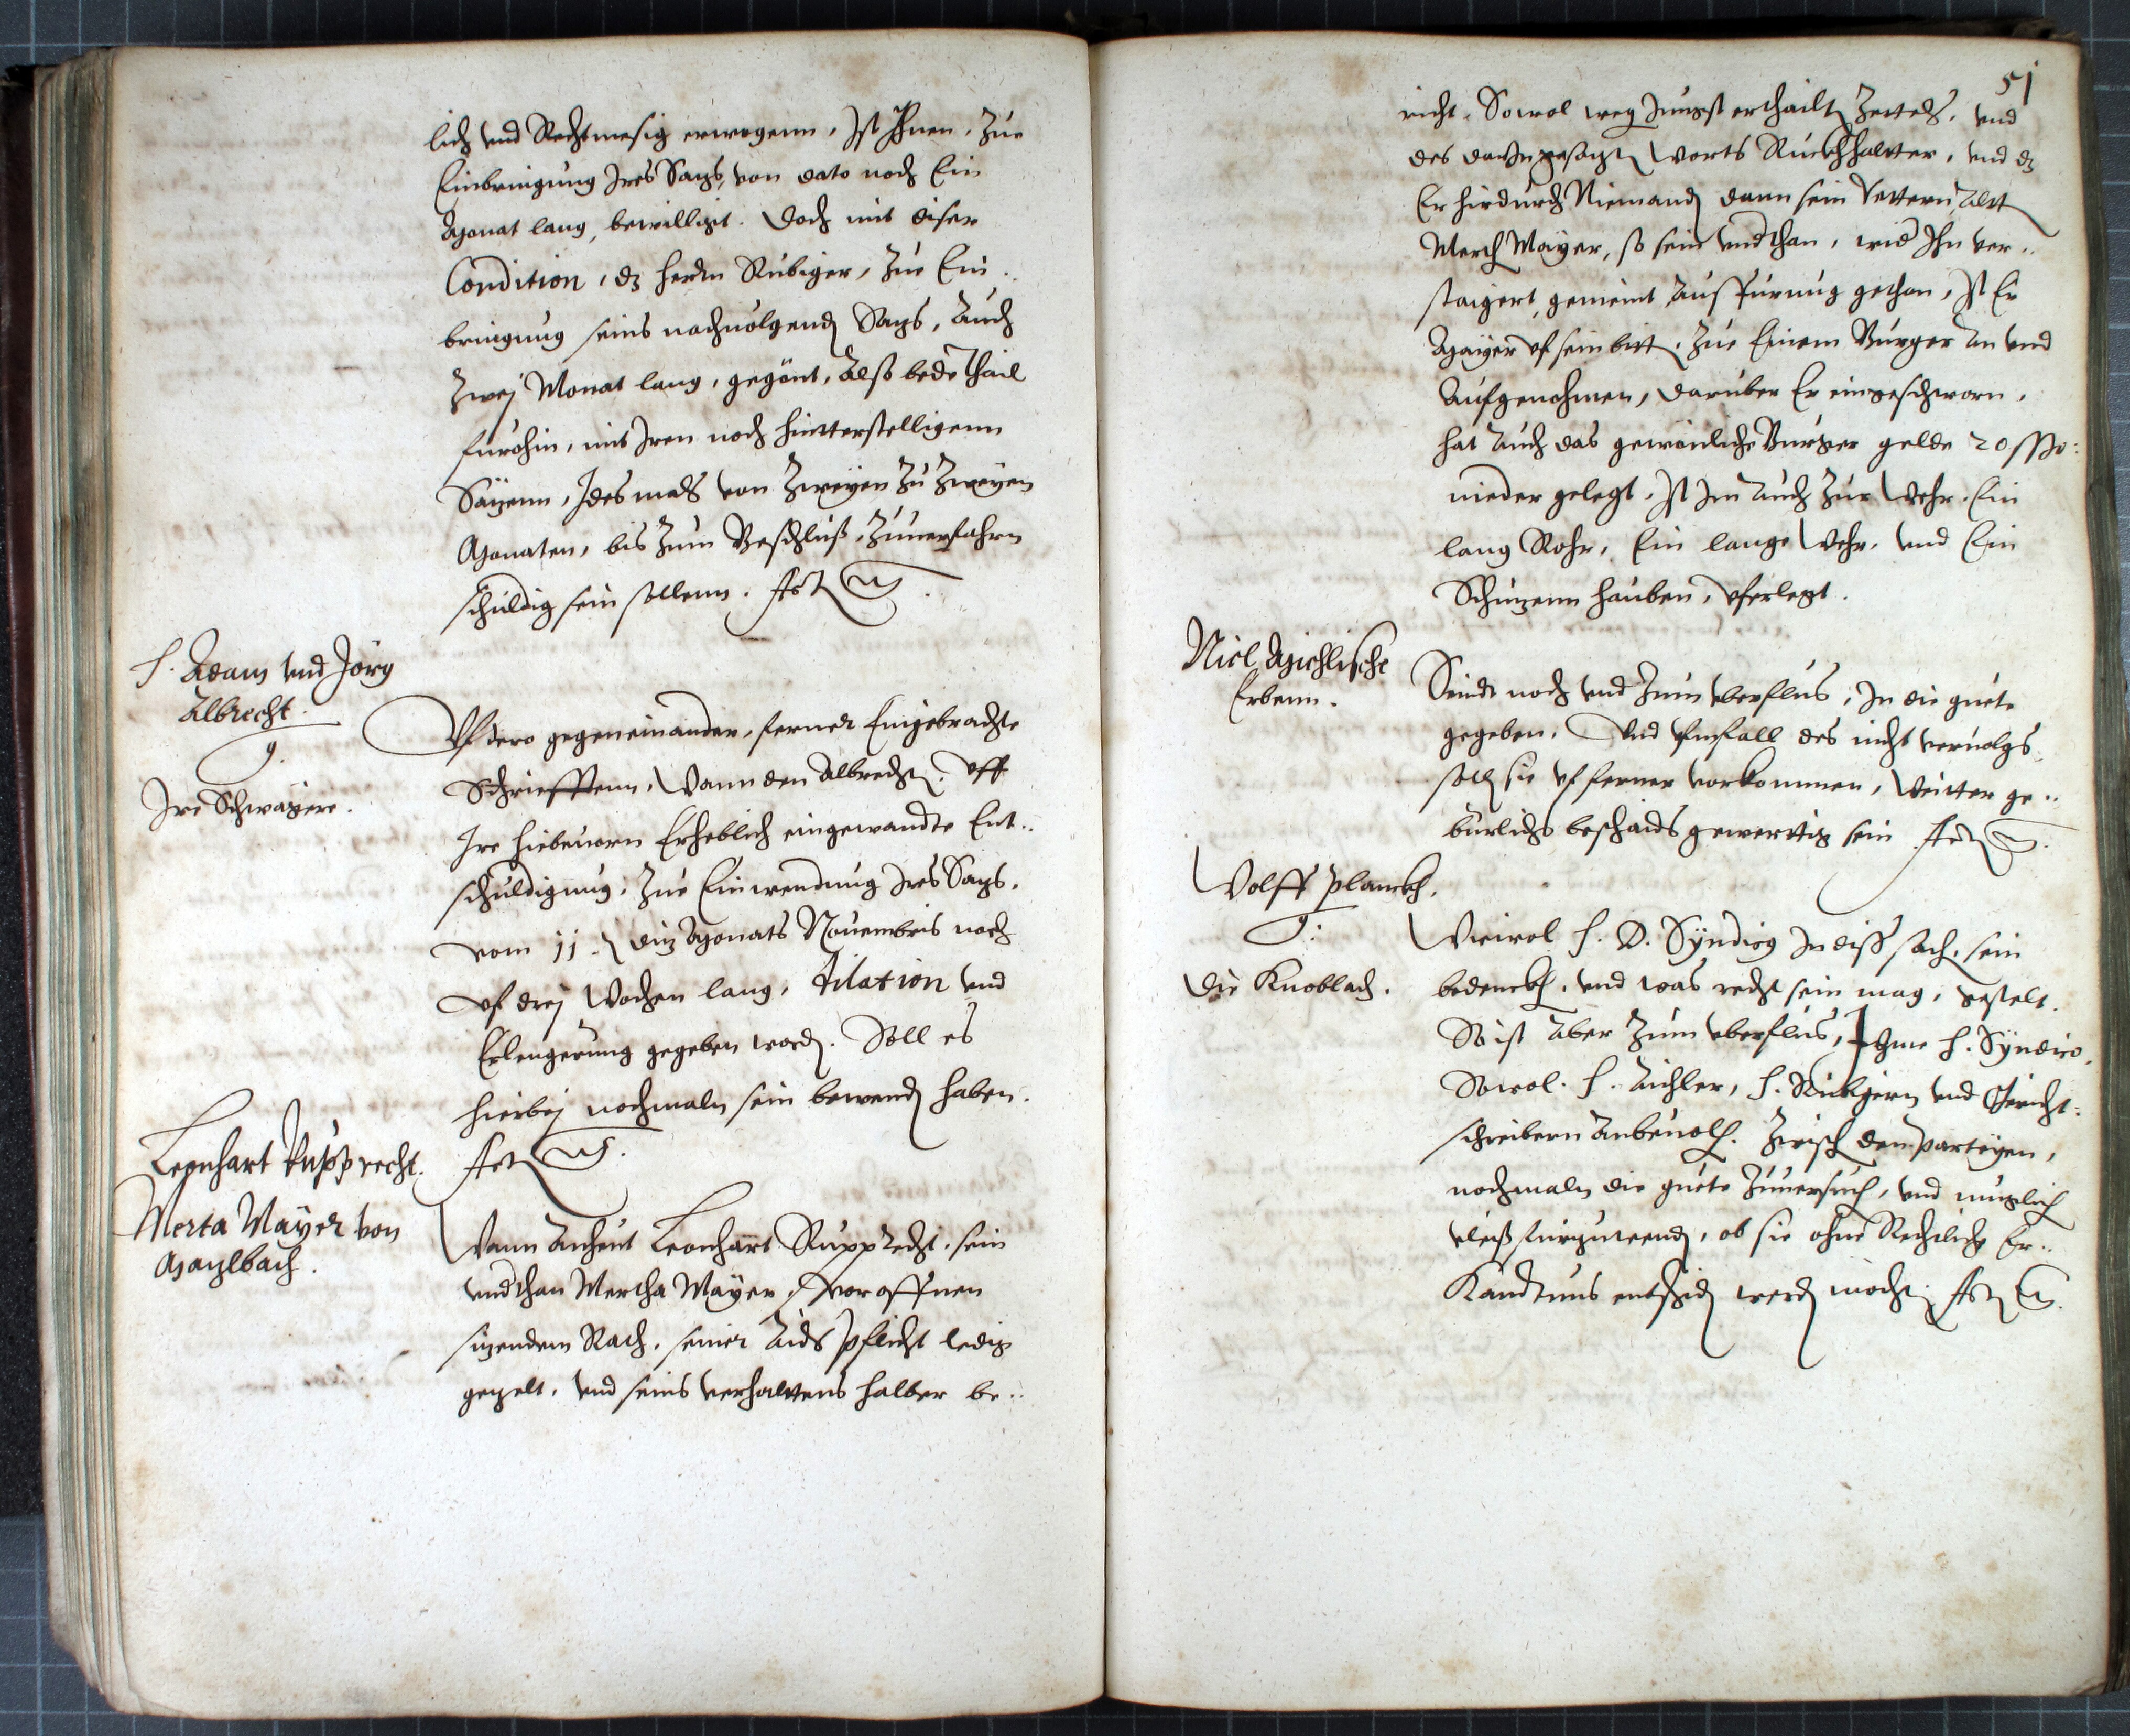 lich vnd Rechtmesig erwogenn, Ist Ihnen, zue
Einbringung Ires Sazs, von dato noch Ein
Monat lang, bewilligt. Doch mit diser
Condition, dz herrn Rubiger, zue Ein..
bringung seins nachuolgend Sazs, Auch
zwej Monat lang, gegönt, Also bede thail
furohin, mit Iren noch hintterstelligenn
Säzenn, Jdesmals von Zweyen zu Zweyen
Monaten, bis zum Beschluß, zuuerfahrn
schuldig sein sollenn.
H. Adam vnd Jörg
Albrecht.
g.
Ire Schwägere.
Vf dero gegeneinander, ferner Eingebrachte
Schriefftenn, Wann den Albrecht. vff
Ire hiebeuorn Erheblich eingewandte Ent..
schuldigung, Zue Einwendung Ires Sazs,
vom 11. diz Monats Nouembris noch
vf drej Wochen lang, dilation vnd
Erlengerung gegeben word. Soll es
hierbej nochmaln sein bewend haben.
Leonhart Rupprecht.
Merta Mayer von
Mazlbach.
Wann Anheut Leonhart Rupprecht, sein
vndthan Mertha Mayer, vor offnen
sizendem Rath, seiner Aids Pflicht ledig
gezelt, vnd seins verhalttens halber be..
51
richt, Sowol weg Jungst ertheilt Zettels, vnd
des darIn gesazt Worts Ruckhhaltter, vnd dz
Er hirdurch Niemand dann sein Vettern, Alt
Merth Mayer, so sein vndthan, wid Ihn ver..
staigert, gemeint, Ausfurung gethan, Ist Er
Mayer vf sein bitt, Zue Einem Burger An vnd
Aufgenohmen, darüber Er eingeschworn,
hat Auch das gewönliche Burger gelde 20
nieder gelegt, Ist Im Auch Zur Wehr, Ein
lang Rohr, Ein lange Wehr, vnd Ein
Schuzenn hauben, vferlegt.
Nicl Michlische
Erbenn.
Seindt noch vnd Zum vberflus, In die guete
gegeben. Vnd Im fall des nicht veruolgs
soln sie vf ferner vorkommen, Weitter ge..
burlichs beschaids gewerttig sein
Wolff Planckh.
g.
Die Knobloch.
Wiewol H. D. Syndicus In diss sach, sein
bedenckh, vnd was recht sein mag, gestelt.
So ist Aber zum vberflus, Ihme H. Syndico,
Sowol H. Aichler, H. Rubigern vnd Gericht..
schreibern Anbeuolh. Zwisch den partheyen,
nochmaln die guete Zuuersuch, vnd muglich
vleiß furzuwend, ob sie ohne Rechtliche Er..
kandtnus entschid werd möcht.